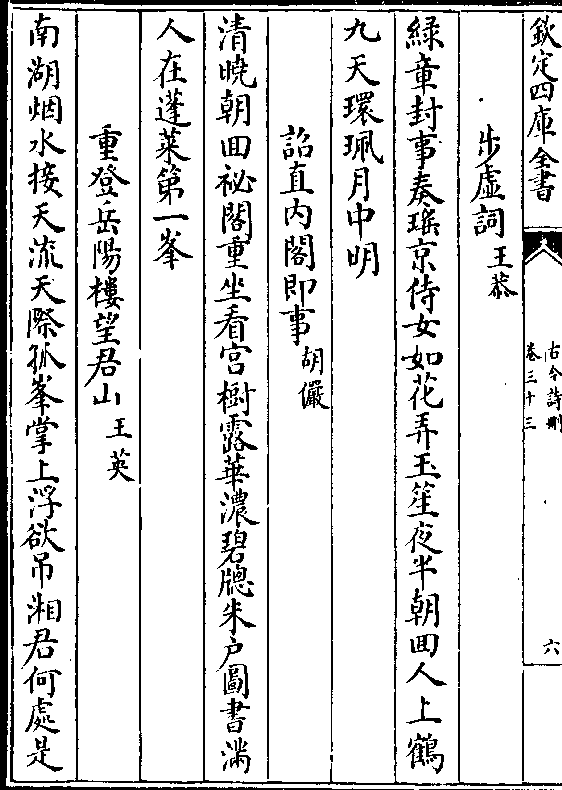 欽定四庫全書
古今詩刪
卷三十三
六
步虛詞王恭
綠章封事奏瑤京侍女如花弄玉笙夜半朝回人上鶴
九天環珮月中明
詔直内閣即事胡儼
清曉朝回祕閣重坐看宮樹露華濃碧牕朱户圖書滿
人在蓬萊第一峯
重登岳陽樓望君山王英
南湖烟水接天流天際孤峯掌上浮欲吊湘君何處是